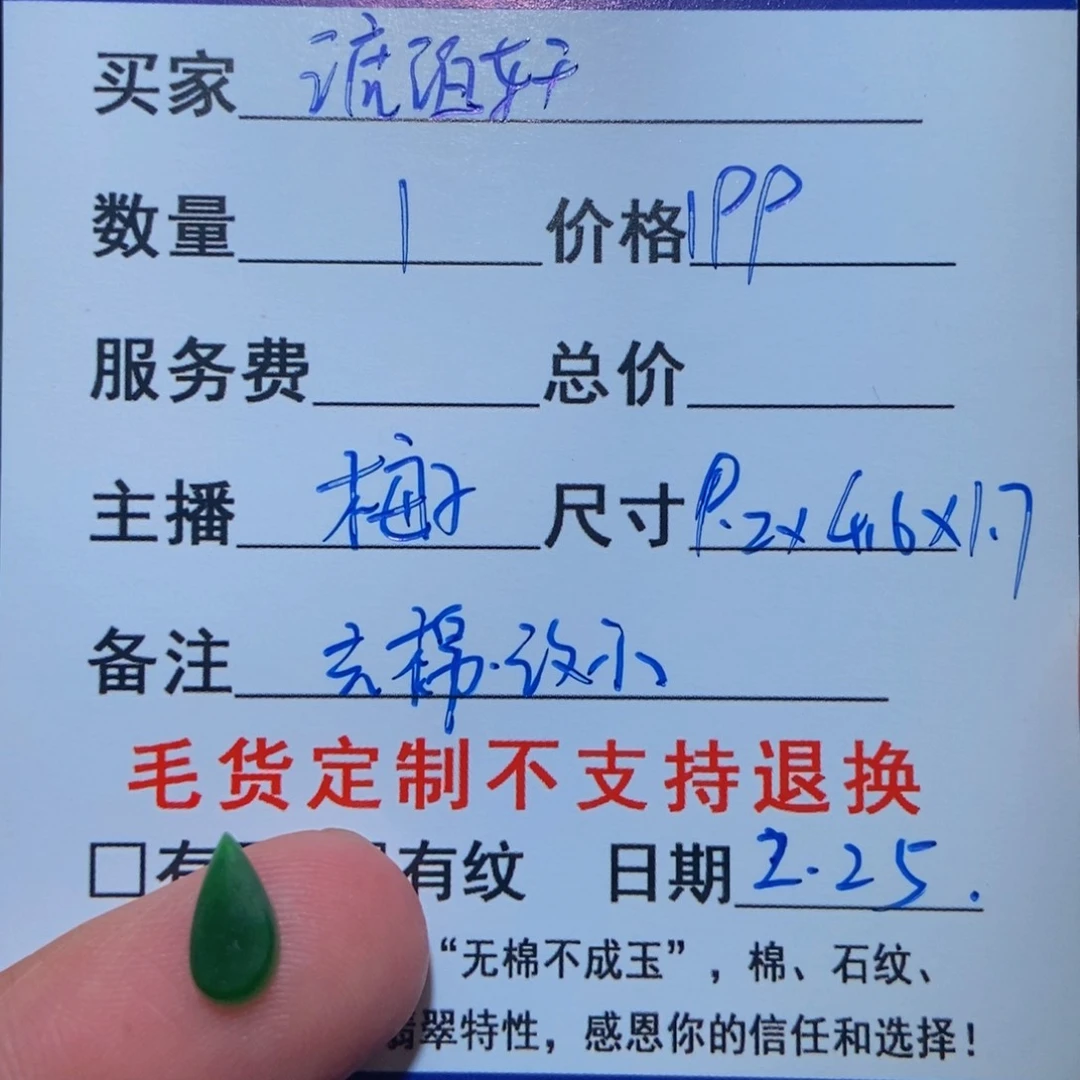 买家
数量 1 价格 199
服务费 总价
主播 梅子 尺寸 9.2x4.6x1.7
备注 纹不
毛货定制不支持退换
□有 有纹 日期 2.25.
“无棉不成玉”，棉、石纹、
翡翠特性，感恩你的信任和选择！